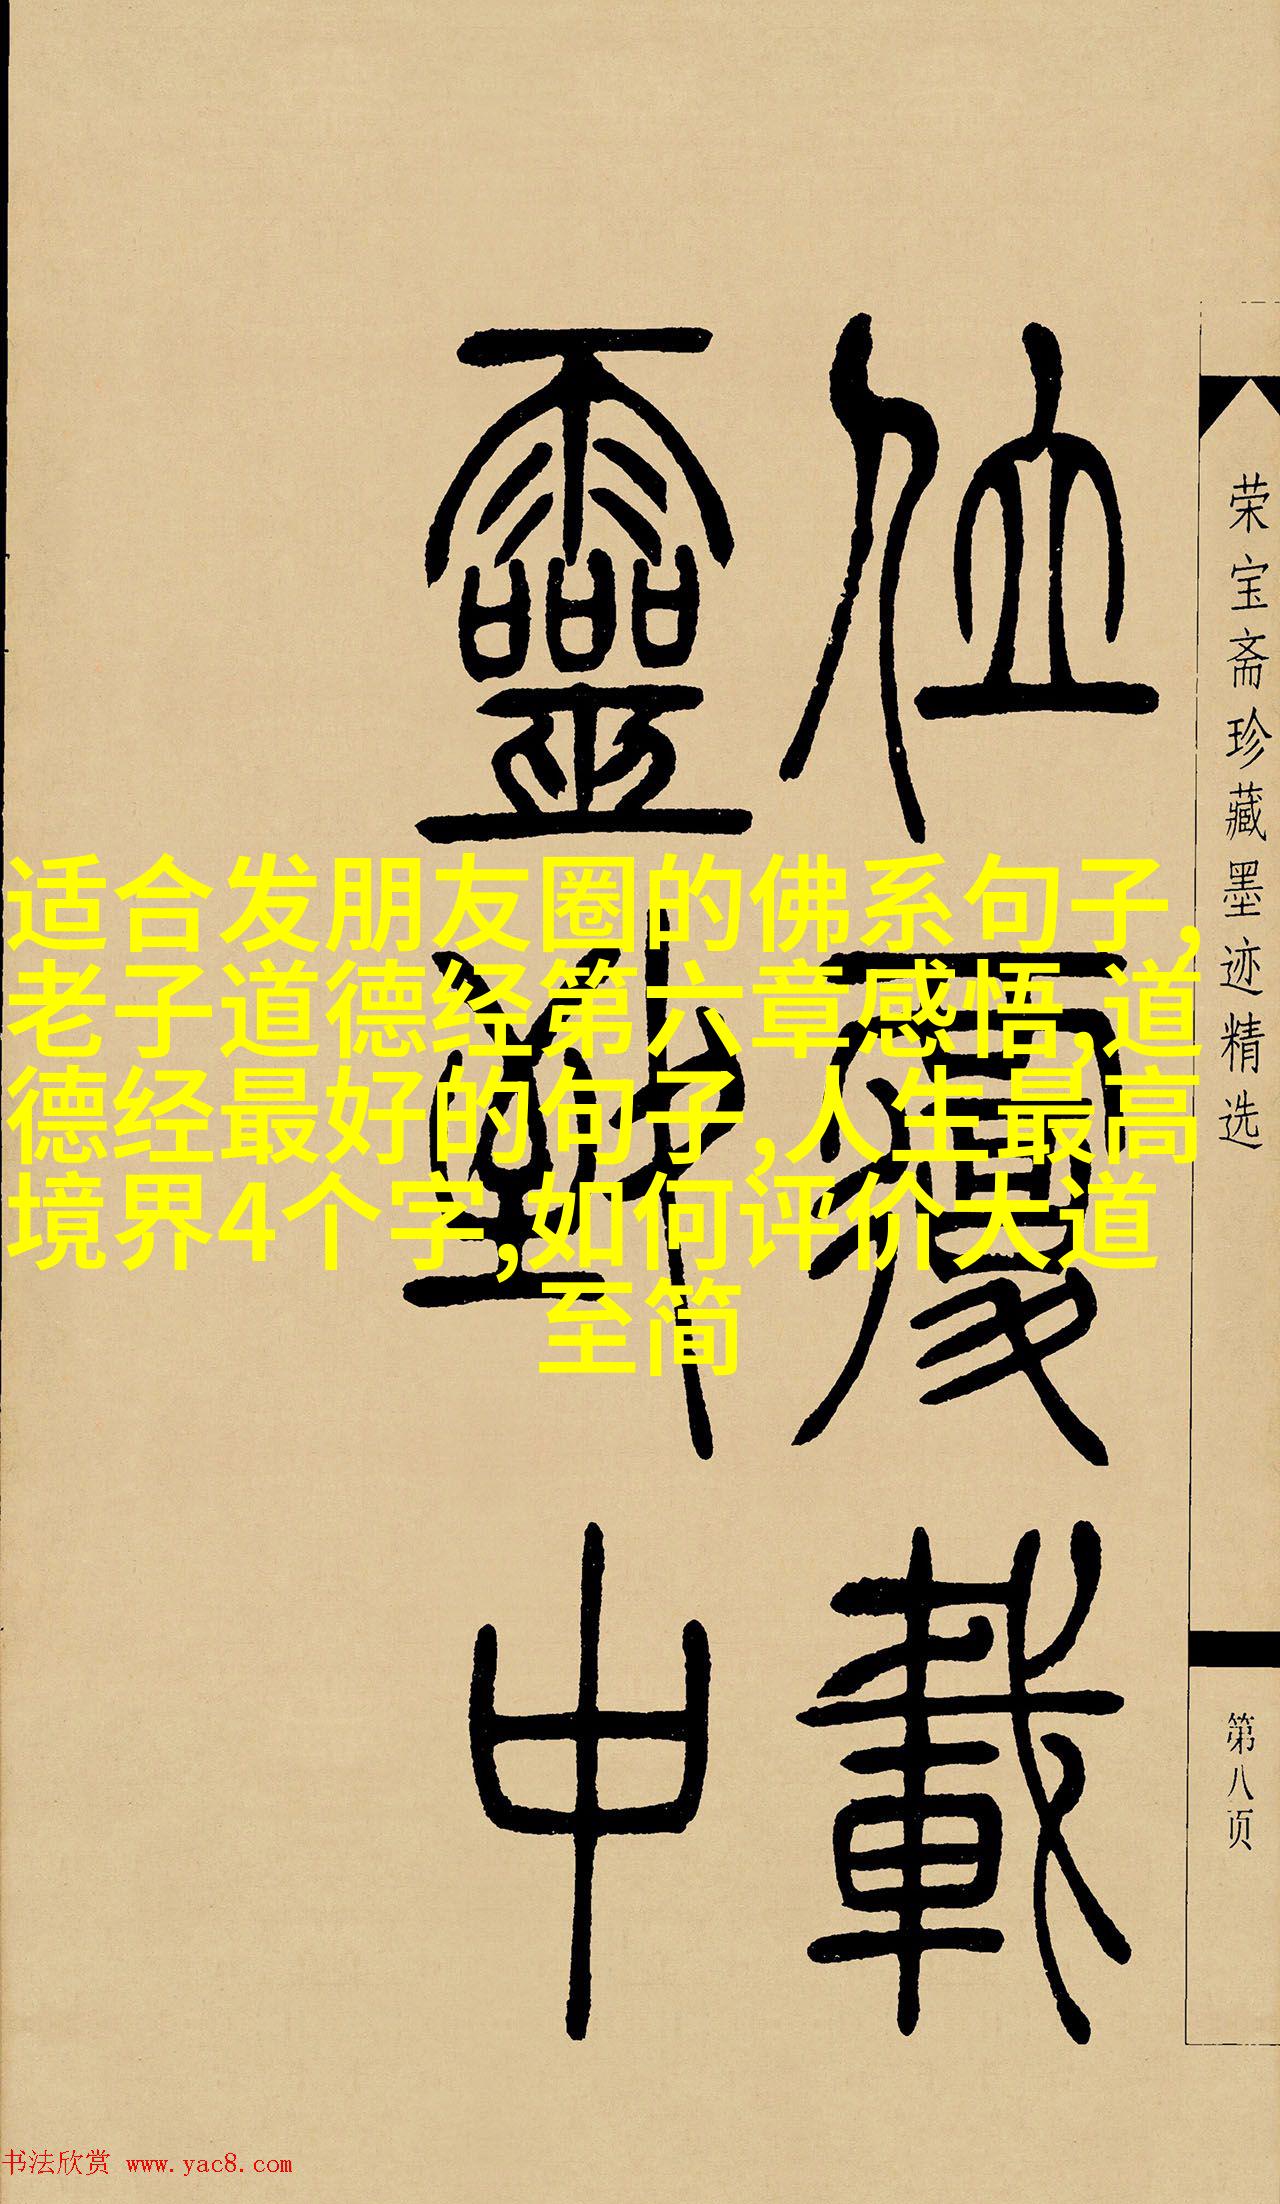 荣宝斋珍藏墨迹精选
第八页
位覆載
靈中
适合发朋友圈的佛系句子,
老子道德经第六章感悟,道
德经最好的句子,人生最高
境界4个字,如何评价大道
至简
书法欣赏 www.yac8.com